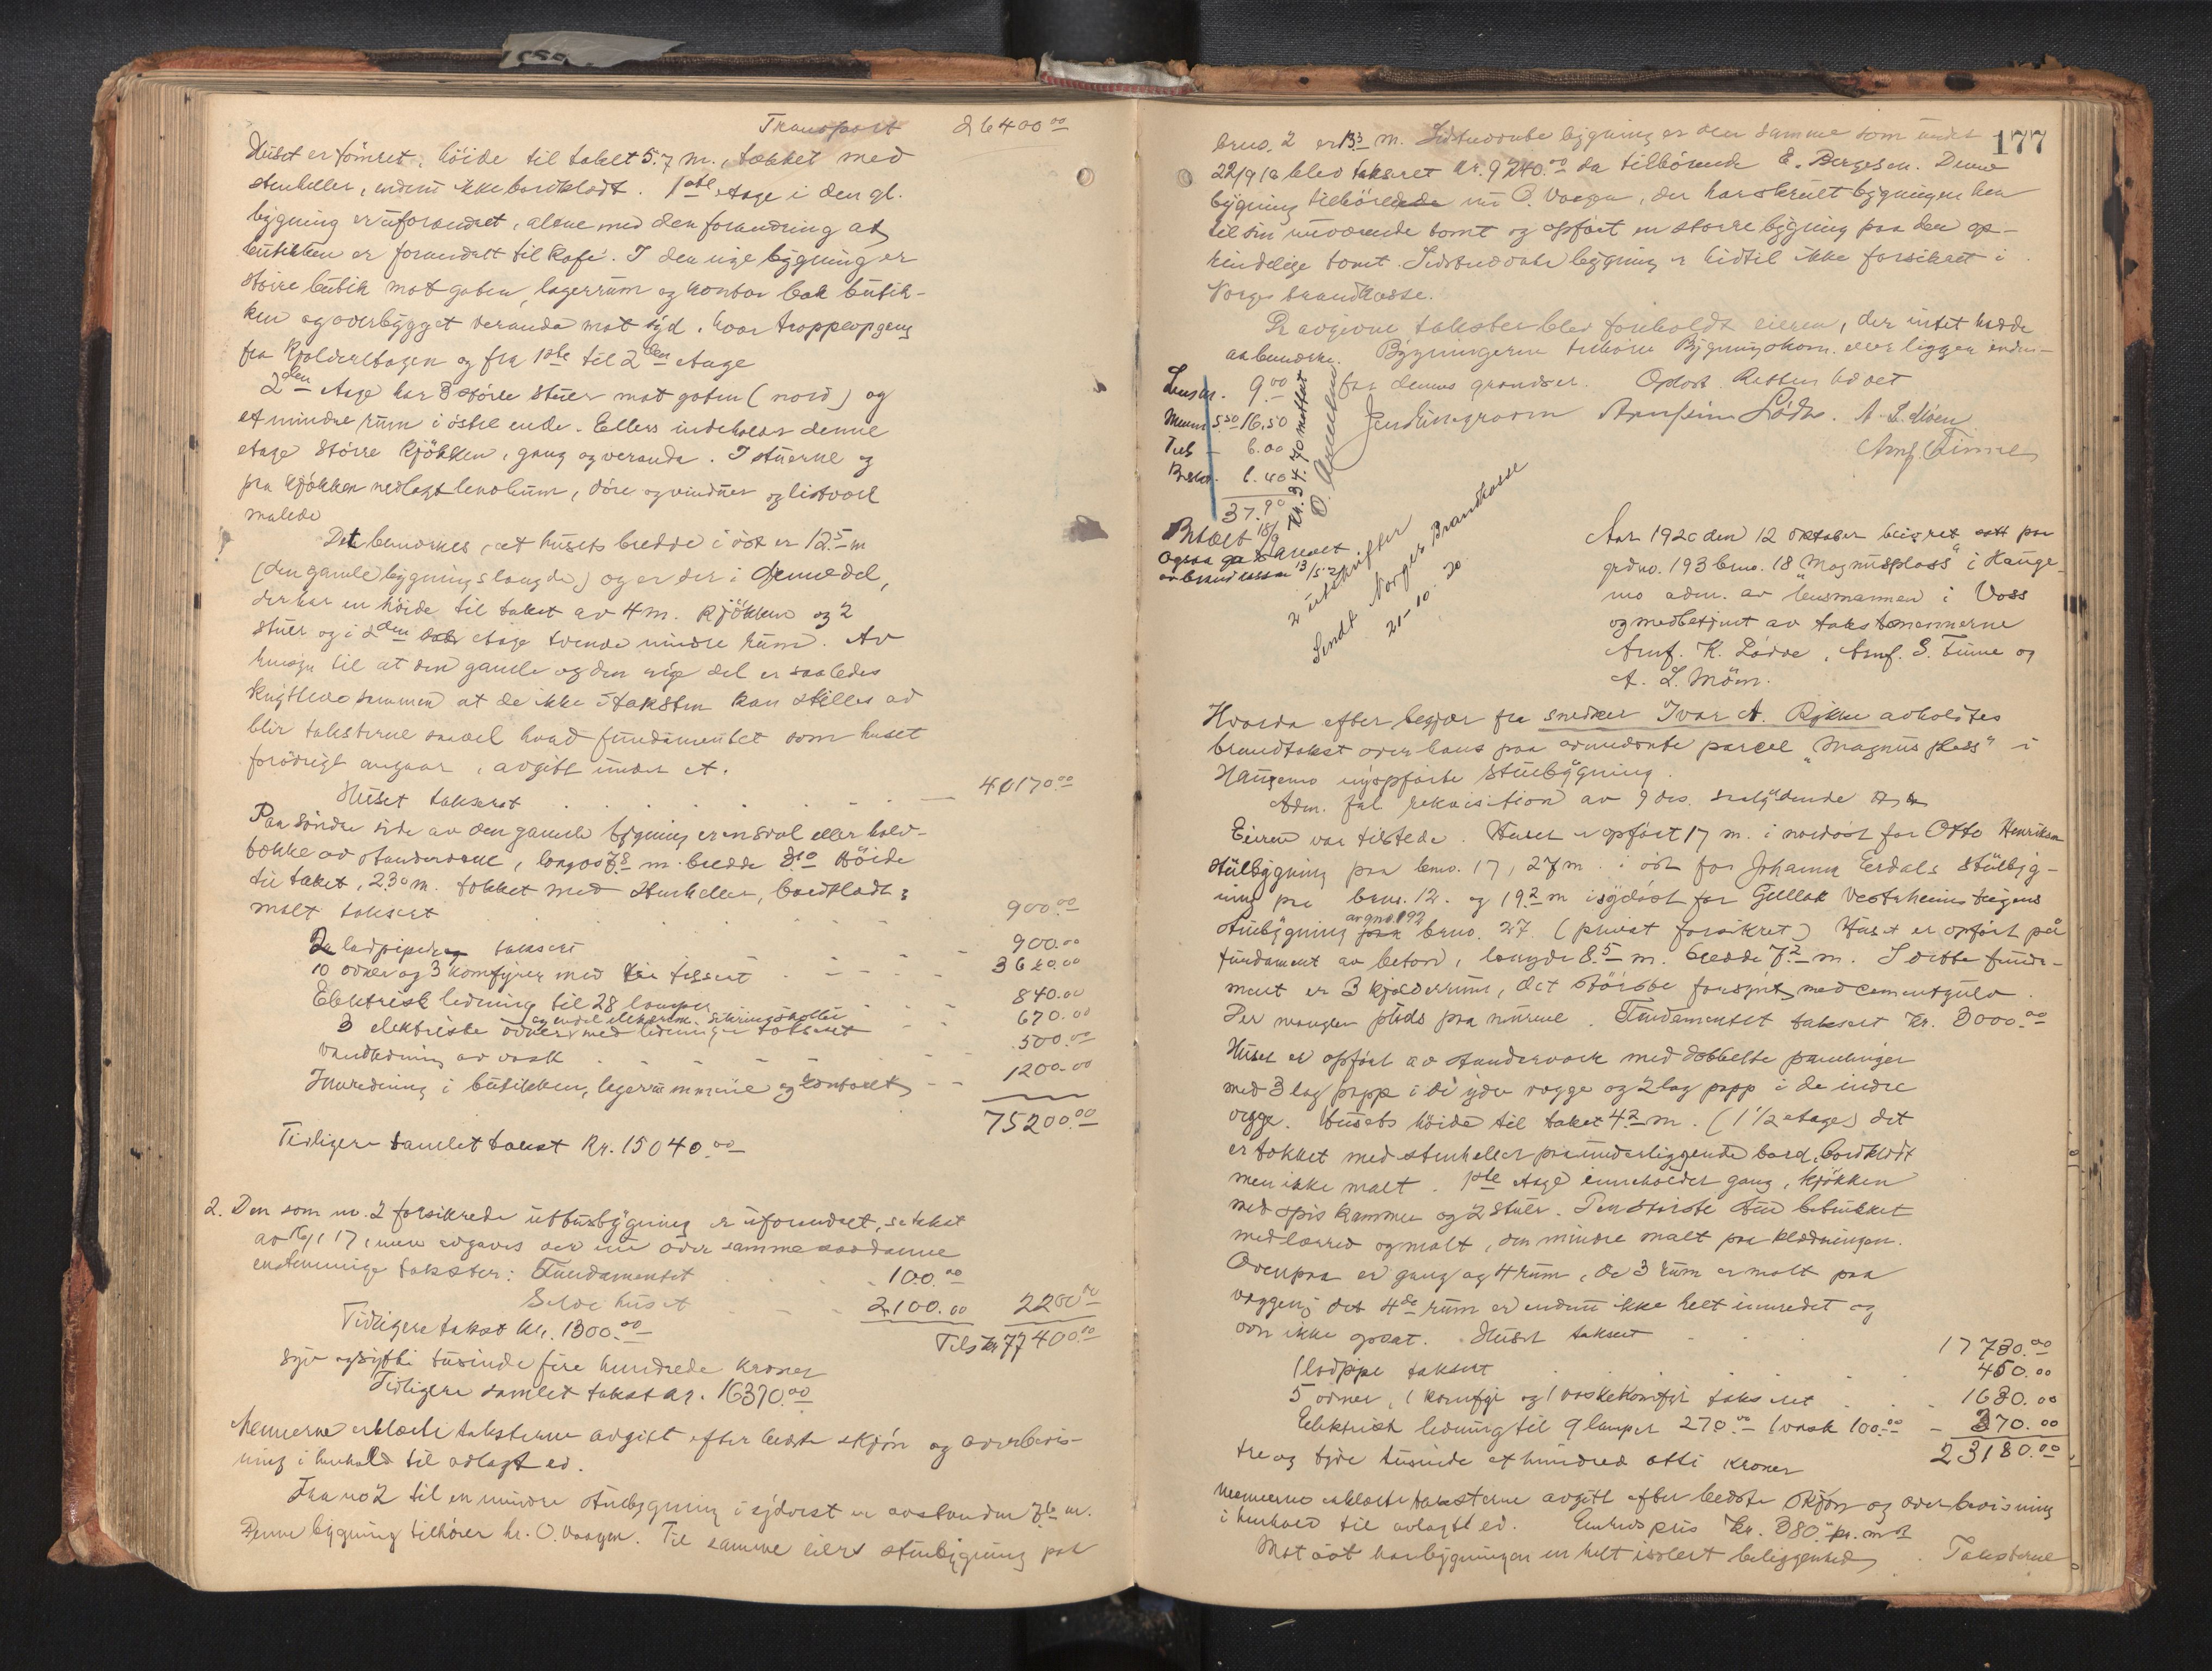 Transport 26400.00
Huset er tömret, höide til taket 5.7 m., tækket med
stenheller, endnu ikke bordklædt. 1ste etage i den gl.
bygning er uforandret, alene med den forandring at
butikken er forandret til kafé. I den nye bygning er
större butik mot gaten, lagerrum og kontor bak butik-
ken og overbygget veranda mot syd, hvor trappeopgang
fra kjelderetagen og fra 1ste til 2den etage
2den etage har 3 större stuer mot gaten (nord) og
et mindre rum i östre ende. Ellers indeholder denne
etage större kjökken, gang og veranda. I stuerne og
paa kjökken nedlagt lenolium, döre og vinduer og listverk
malede
Det bemerkes, at husets bredde i öst er 12.5 m
(den gamle bygnings længde) og er der i
der har en höide til taket av 4 m. kjökken og 2
stuer og i 2den etage tvende mindre rum. Av
hensyn til at den gamle og den nye del er saaledes
knyttede sammen at de ikke i taksten kan skilles ad
blir taksterne saavel hvad fundamentet som huset
forövrigt angaar, avgitt under et.
Huset takseret 40170.00
Paa söndre side av den gamle bygning er en sval eller halv-
tække av standerverk, længde 7.8 m. bredde 3.10 Höide
til taket, 2.30 m. tækket med stenheller, bordklædt &
malt taksert 900.00
2 ladpiper taksert 900.00
10 ovner og 3 komfyrer med taksert 3620.00
Elektrisk ledning til 28 lamper 840.00
og endel elektrisk sikringskoffer
3 elektriske ovner med ledninger taksert 670.00
Vandledning av vask 500.00
Innredning i butikken, lagerrummene og kontoret 1200.00
75200.00
Tidligere samlet takst Kr. 15040.00
2. Den som no. 2 forsikrede uthusbygning er uforandret, se takst
av 17, men avgaves der nu over samme saadanne
enstemmige takster: Fundamentet 100.00
Selve huset 2100.00 2200.00
Tidligere takst kr. 1300.00 Tils. kr 77400.00
syv og sytti tusinde fire hundrede kroner
Tidligere samlet takst kr. 16370.00
Mennerne erklærte taksterne avgitt efter bedste skjön og overbevis-
ning i henhold til avlagt ed.
Fra no 2 til en mindre stuebygning i sydvest er avstanden 7.6 m.
Denne bygning tilhörer hr. O. Vaagen. Til samme eiers stuebygning paa
177
bruno. 2 er 13.3 m. Sidstnævnte bygning er den samme som under
22/9 16 blev takseret kr. 9240.00 da tilhörende E. Bergesen. Denne
bygning tilhörer nu O. Vaagen, der har skrudt bygningen hen
til sin nuværende tomt og opfört en större bygning paa den op-
rindelige tomt. Sidstnævnte bygning er hidtil ikke forsikret i
Norges brandkasse.
De avgivne takster blev foreholdt eieren, der intet hadde
at bemerke. Bygningerne tilhörer Bygningskom. eller ligger inden-
for dennes grændser. Oplæst. Retten hævet
Lensm. 9.00
Menn 5.50 16.50
Tils 6.00
Besk. 6.40
37.90
Kr. 34.70 mottat
A. L. Möen
Arnf. Finne
Betalt 18/9
2 utskrifter
Sendt Norges Brandkasse
21-10-20
Aar 1920 den 12 oktober blev ret satt paa
grdno. 193 bruno. 18 "Magnusplass" i Hauge-
mo adm. av lensmannen i Voss
og medbetjent av takstmennerne
Arnf. K. Lödve, Arnf. S. Finne og
A. L. Möen.
Hvorda efter begjær fra snedker Ivar A. Rykke avholdtes
brandtakst over hans paa omvendte parcel "Magnusplass" i
Haugemo nyopförte stuebygning.
Adm. fremla rekvisition av 9 ds. saalydende
Eieren var tilstede. Huset er opfört 17 m. i nordöst for Otto Henriksen
stuebygning paa bruno. 17, 27 m. i öst for Johanna Erdals stuebyg-
ning paa bruno. 12. og 19.2 m i sydöst for Gullak Vestrheims
av gno. 192
stuebygning bruno. 27. (privat forsikret) Huset er opfört på
fundament av beton, længde 8.5 m. bredde 7.2 m. I dette funda-
ment er 3 kjelderrum, det störste forsynt med cementgulv.
Der mangler puds paa murene. Fundamentet taksert kr. 3000.00
Huset er opfört av standerverk med dobbelte panelinger
med 3 lag papp i de ydre vægge og 2 lag papp i de indre
vægge. Husets höide til taket 4.2 m. (1 1/2 etage) det
er tækket med stenheller paa underliggende bord, bordklædt
men ikke malt. 1ste etage inneholder gang, kjökken
med spiskammer og 2 stuer. Den störste stue betrukket
med lærred og malt, den mindre malt paa klædningen.
Ovenpaa er gang og 4 rum, de 3 rum er malt paa
væggen, det 4de rum er endnu ikke helt innredet og
ovn ikke opsat. Huset taksert 17780.00
1 ladpipe taksert 450.00
5 ovner, 1 komfyr og 1 vaskekomfyr taksert 1680.00
Elektrisk ledning til 9 lamper 270.00 1 vask 100.00 370.00
23180.00
tre og tyve tusinde et hundred otti kroner
Mennerne erklærte taksterne avgitt efter bedste skjön og overbevisning
i henhold til avlagt ed. Enhedspris kr. 380 pr. m2
Mot öst har bygningen en helt isolert beliggenhed. Taksterne